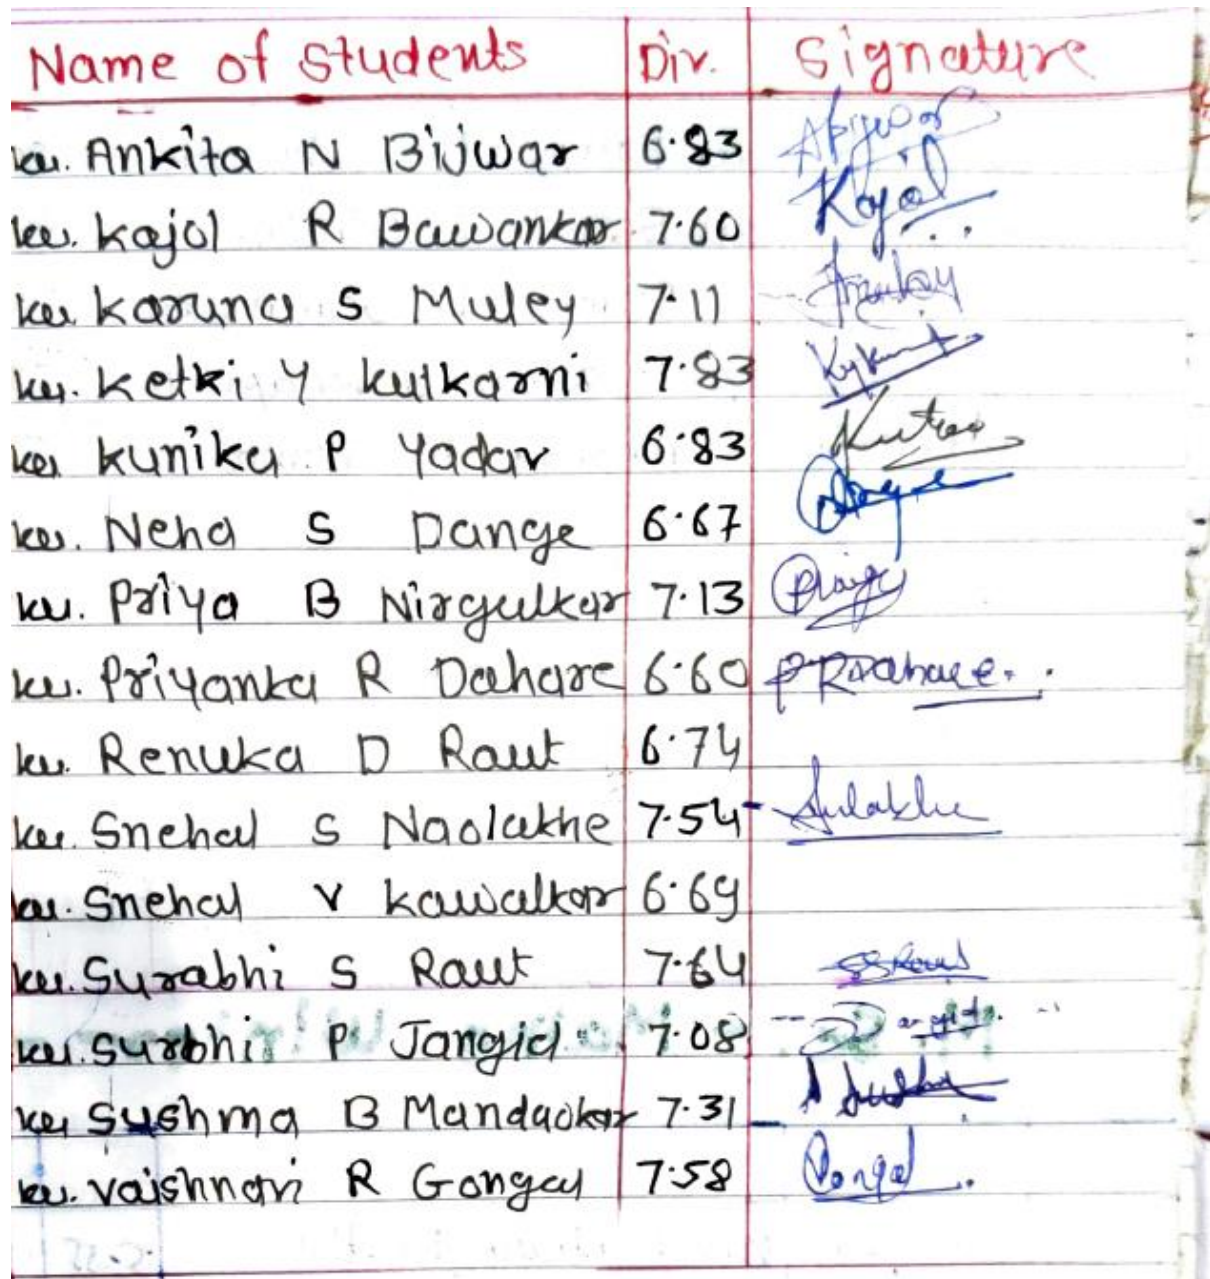 Name of Students Div. Signature
ku. Ankita N Bijwar 6.83
ku. Kajol R Bawankar 7.60 Kajol
ku. Karuna S Muley 7.11
ku. Ketki Y Kulkarni 7.83
ku. Kunika P Yadav 6.83
ku. Neha S Dange 6.67
ku. Priya B Nirgulkar 7.13
ku. Priyanka R Dahare 6.60 PRDahare.
ku. Renuka D Raut 6.74
ku. Snehal S Naolakhe 7.54
ku. Snehal V Kawalkar 6.69
ku. Surabhi S Raut 7.64 SSRaut
ku. Surbhi P Jangid 7.08 Jangid.
ku. Sushma B Mandaokar 7.31
ku. Vaishnavi R Gongal 7.58